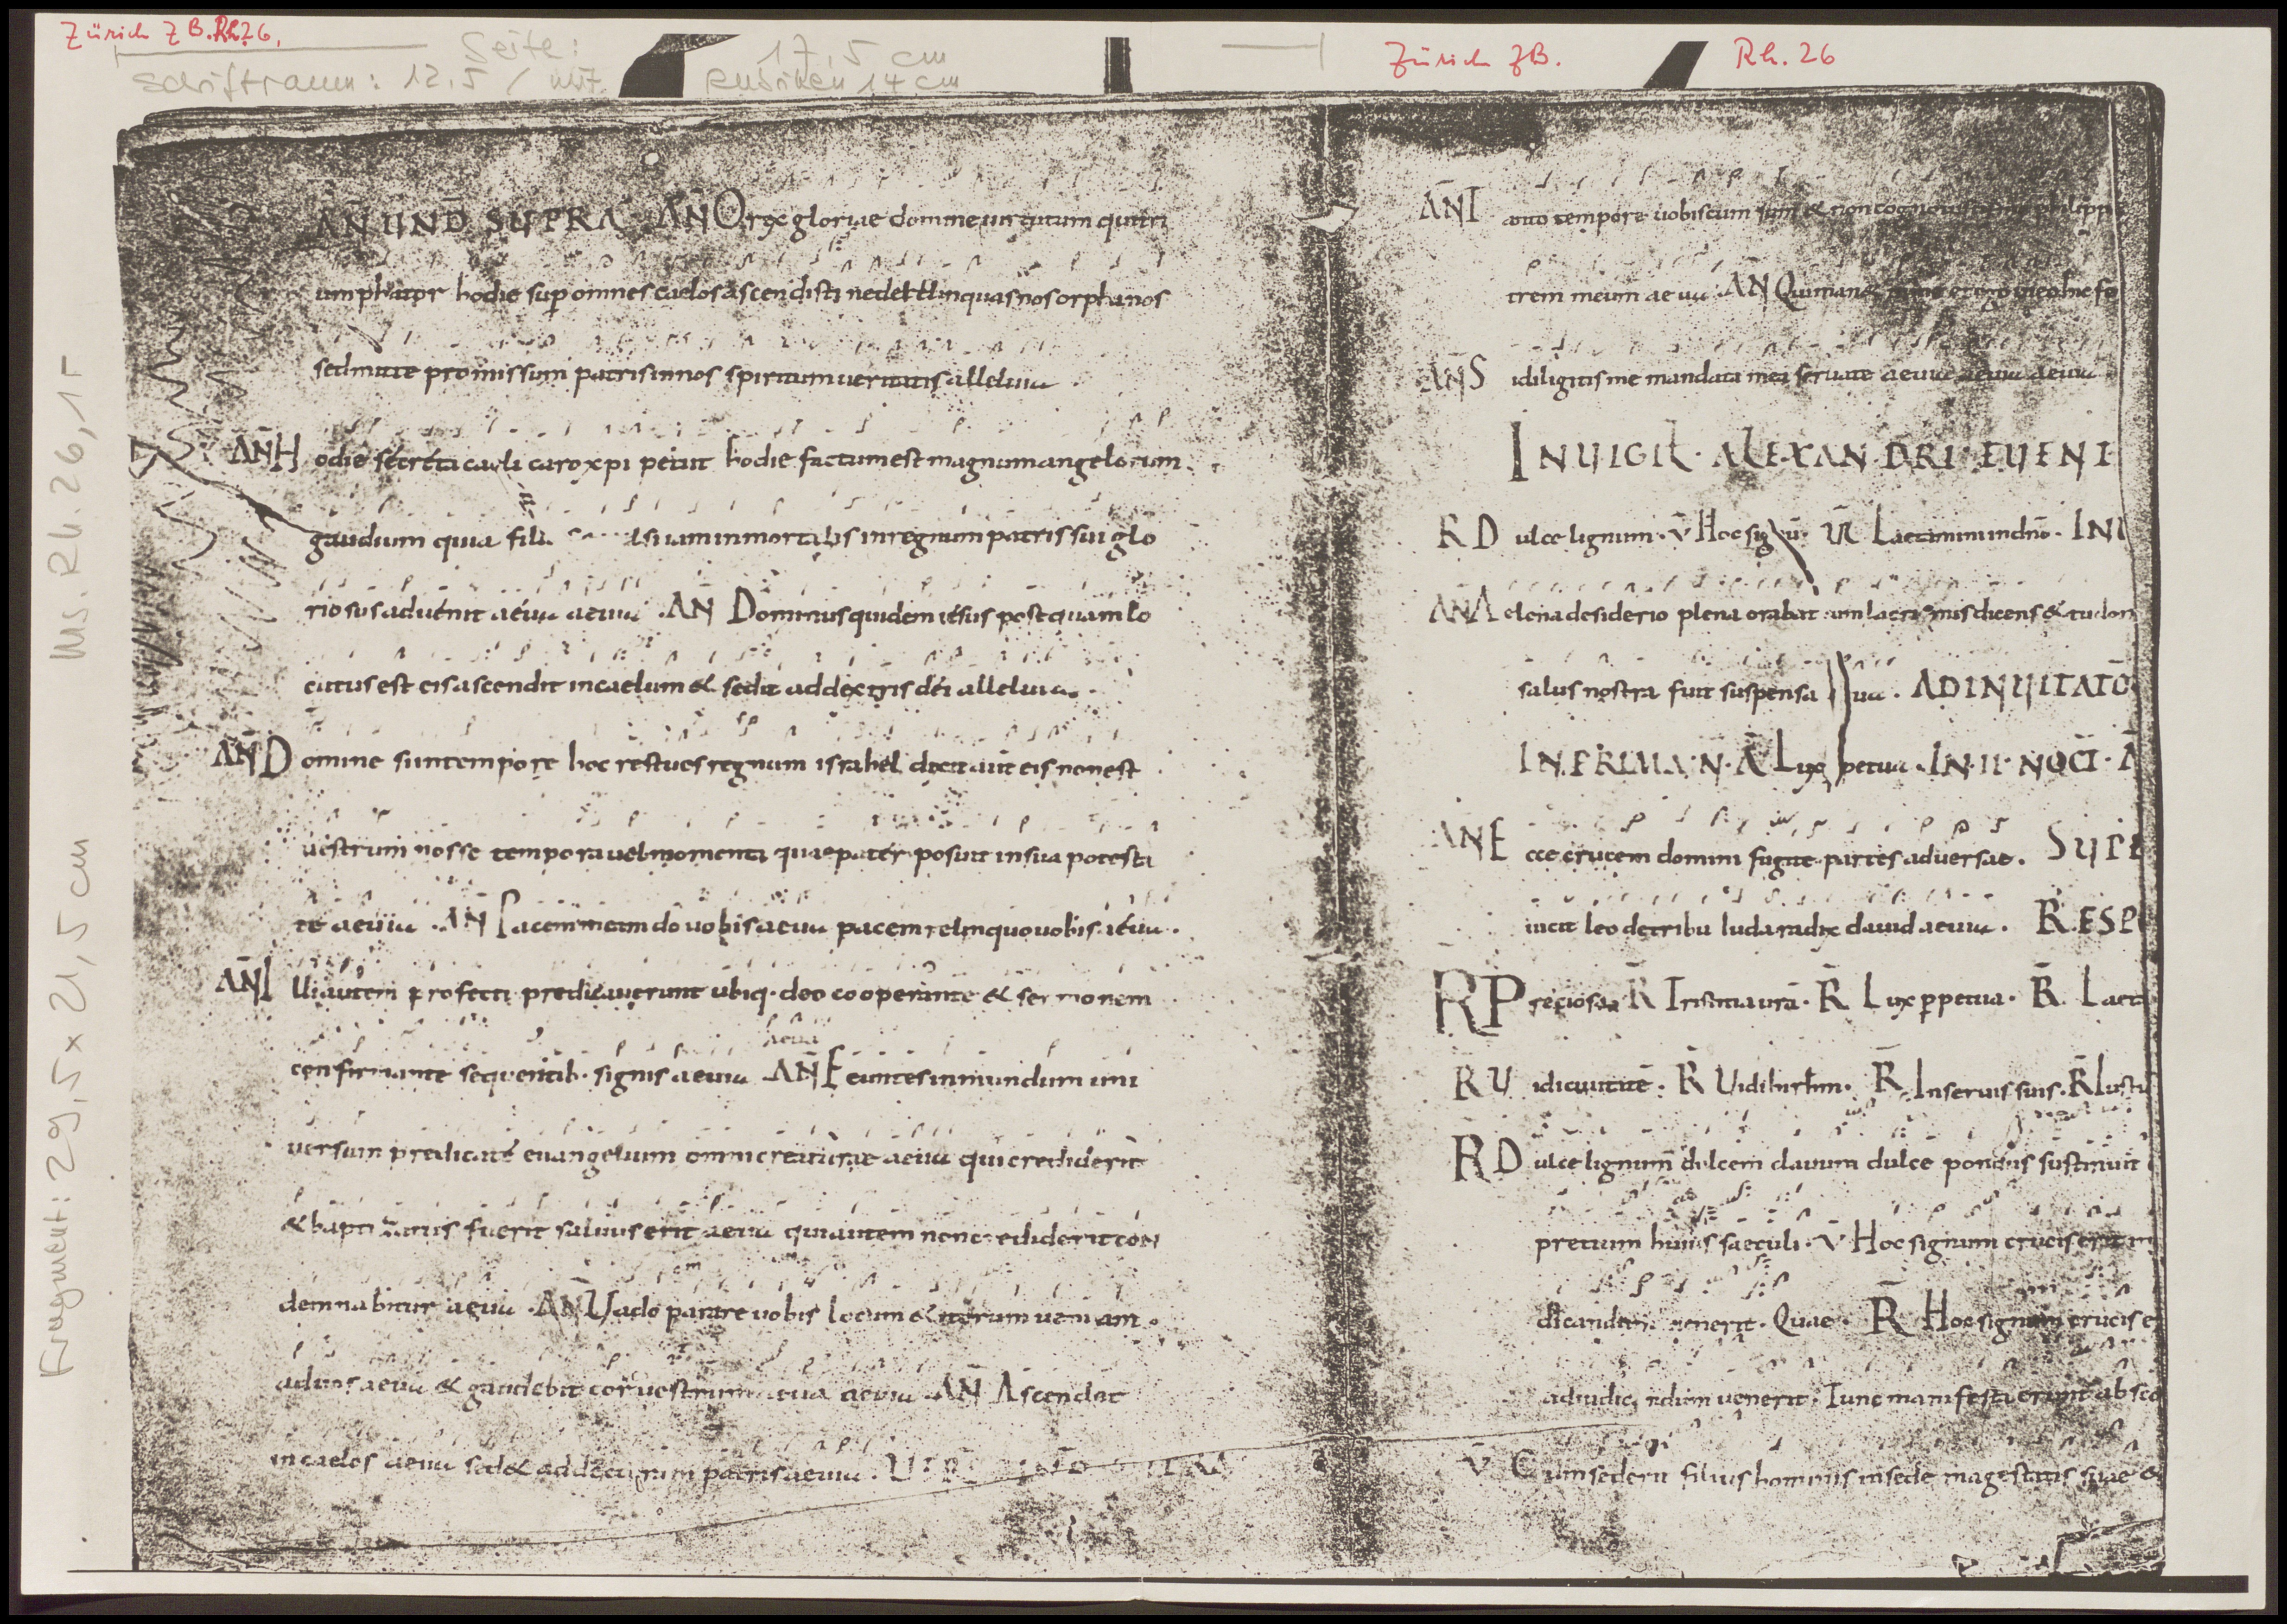 Zürich ZB. Rh. 26,
Seite: 17,5 cm
Schriftraum: 12,5 / mit Rubriken 14 cm
Zürich ZB. Rh. 26
Ms. Rh. 26, 1r
Fragment: 29,5 x 21,5 cm
AÑ UND SUPRA AÑ O rex gloriae domine uirtutum qui tri
umphator hodie sup omnes caelos ascendisti ne derelinquas nos orphanos
sed mitte promissum patris in nos spiritum ueritatis alleluia
AÑ H odie secreta caeli caro xpi petiit hodie factum est magnum angelorum
gaudium quia filii inmortalis in regnum patris sui glo
riosus aduenit aeuia aeuia AN Dominus quidem iesus postquam lo
cutus est eis ascendit in caelum & sedit ad dextris dei alleluia.
AÑ D omine si in tempore hoc restitues regnum israhel dixit aut eis non est
uestrum nosse tempora uel momenta quae pater posuit in sua potesta
te aeuia AN Pacem meam do uobis aeuia pacem relinquo uobis aeuia.
AÑ I lli autem profecti predicauerunt ubiq. deo cooperante & sermonem
confirmante sequentib. signis aeuia AÑ E euntes in mundum uni
aeuia
uersum predicate euangelium omni creaturae aeuia qui crediderit
& baptizatus fuerit saluus erit aeuia qui autem non crediderit con
demnabitur aeuia AÑ Uado parare uobis locum & iterum ueniam.
ad uos aeuia & gaudebit cor uestrum aeuia aeuia AN Ascendit
in caelos aeuia sed& ad dexteram patris aeuia.
AÑ T anto tempore uobiscum sum & non cognouistis philippe
trem meum aeuia AN Qui manet
AÑ S i diligitis me mandata mea seruate aeuia aeuia aeuia
IN UIGIL. ALEXANDRI EUENI
R D ulce lignum. V Hoc sig Laetamini in dno. INI
AÑ A elena desiderio plena orabat cum lacrimis dicens &
salus nostra fuit suspensa AD INUITATO
IN PRIMA N. A Lux petua. IN II NOCT. A
AN E cce crucem domini fugite partes aduersae. SUPE
uicit leo de tribu Iuda radix dauid aeuia. RESP
R P reciosa R Tristitia ura. R Lux ppetua. R Laeta
R U R R In seruis suis. R Iusti
R D ulce lignum dulcem clauum dulce pondus sustinuit
pretium huius saeculi. V Hoc signum crucis erit
dicandum uenerit. Quae. R Hoc signum crucis e
ad iudicandum uenerit. Tunc manifesta erunt absco
V C um sederit filius hominis in sede magestatis suae &